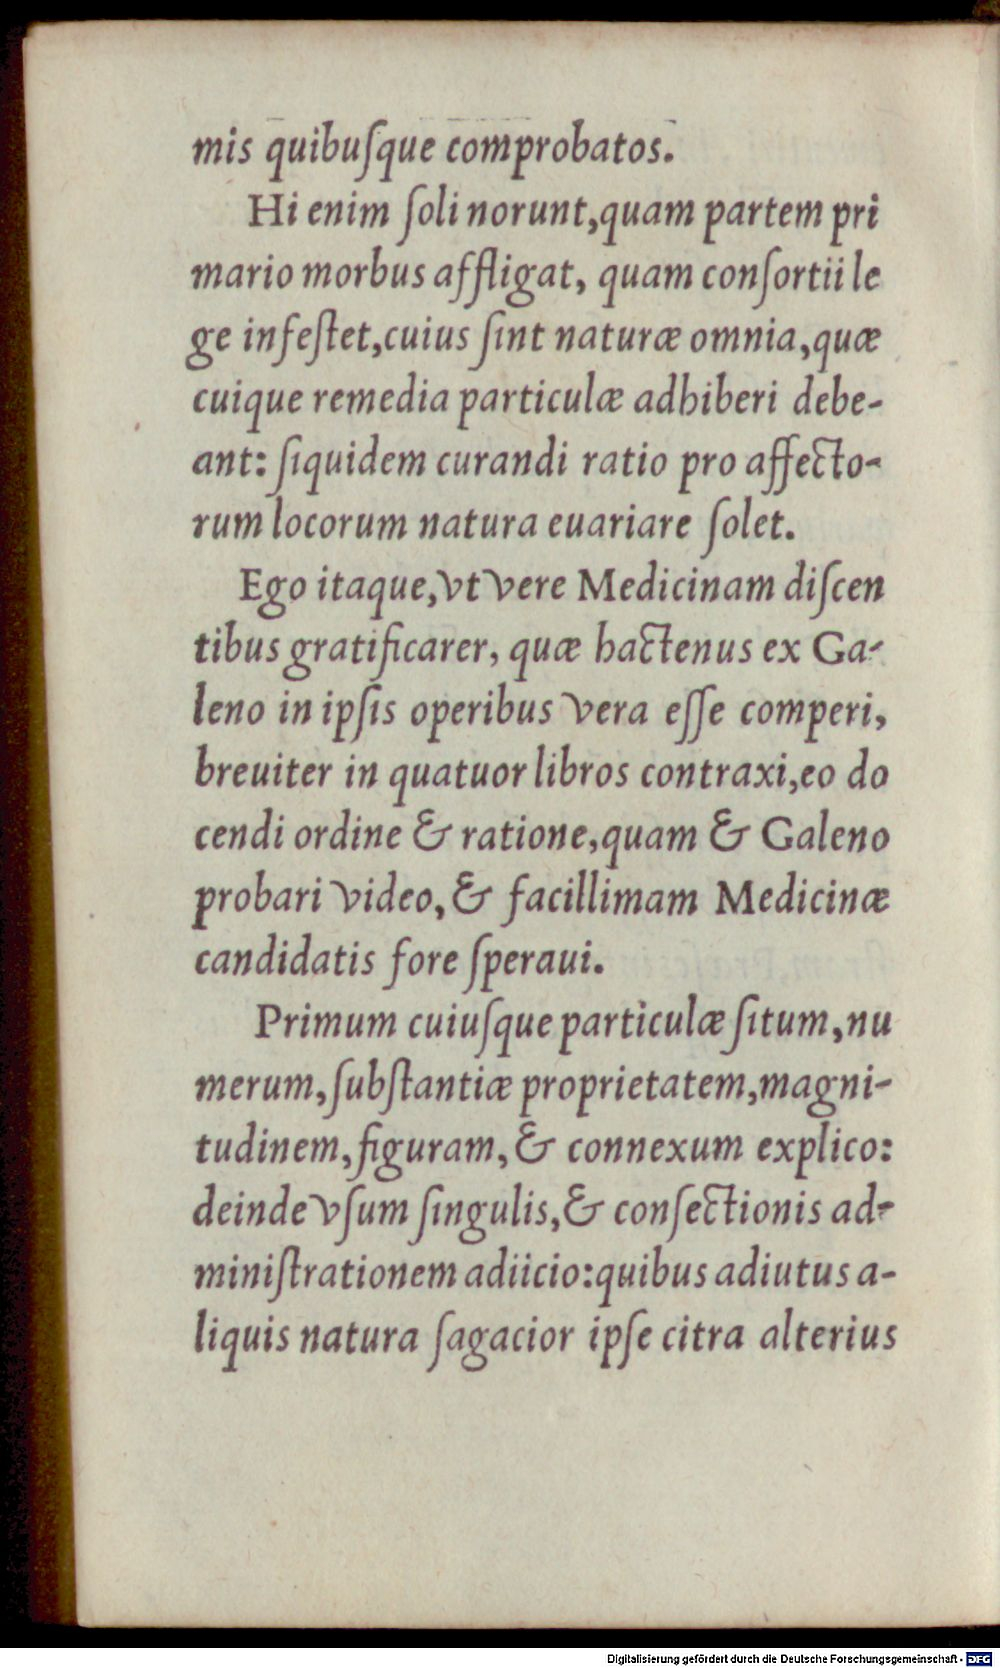 mis quibuſque comprobatos.
Hi enim ſoli norunt,quam partem pri
mario morbus affligat, quam conſortii le
ge infeſtet,cuius ſint naturæ omnia,quæ
cuique remedia particulæ adhiberi debe-
ant: ſiquidem curandi ratio pro affecto-
rum locorum natura euariare ſolet.
Ego itaque,vt vere Medicinam diſcen
tibus gratificarer, quæ hactenus ex Ga-
leno in ipſis operibus vera eſſe comperi,
breuiter in quatuor libros contraxi,eo do
cendi ordine & ratione,quam & Galeno
probari video,& facillimam Medicinæ
candidatis fore ſperaui.
Primum cuiuſque particulæ ſitum,nu
merum,ſubſtantiæ proprietatem,magni-
tudinem,figuram,& connexum explico:
deinde vſum ſingulis,& conſectionis ad-
miniſtrationem adiicio:quibus adiutus a-
liquis natura ſagacior ipſe citra alterius
Digitalisierung gefördert durch die Deutsche Forschungsgemeinschaft - DFG